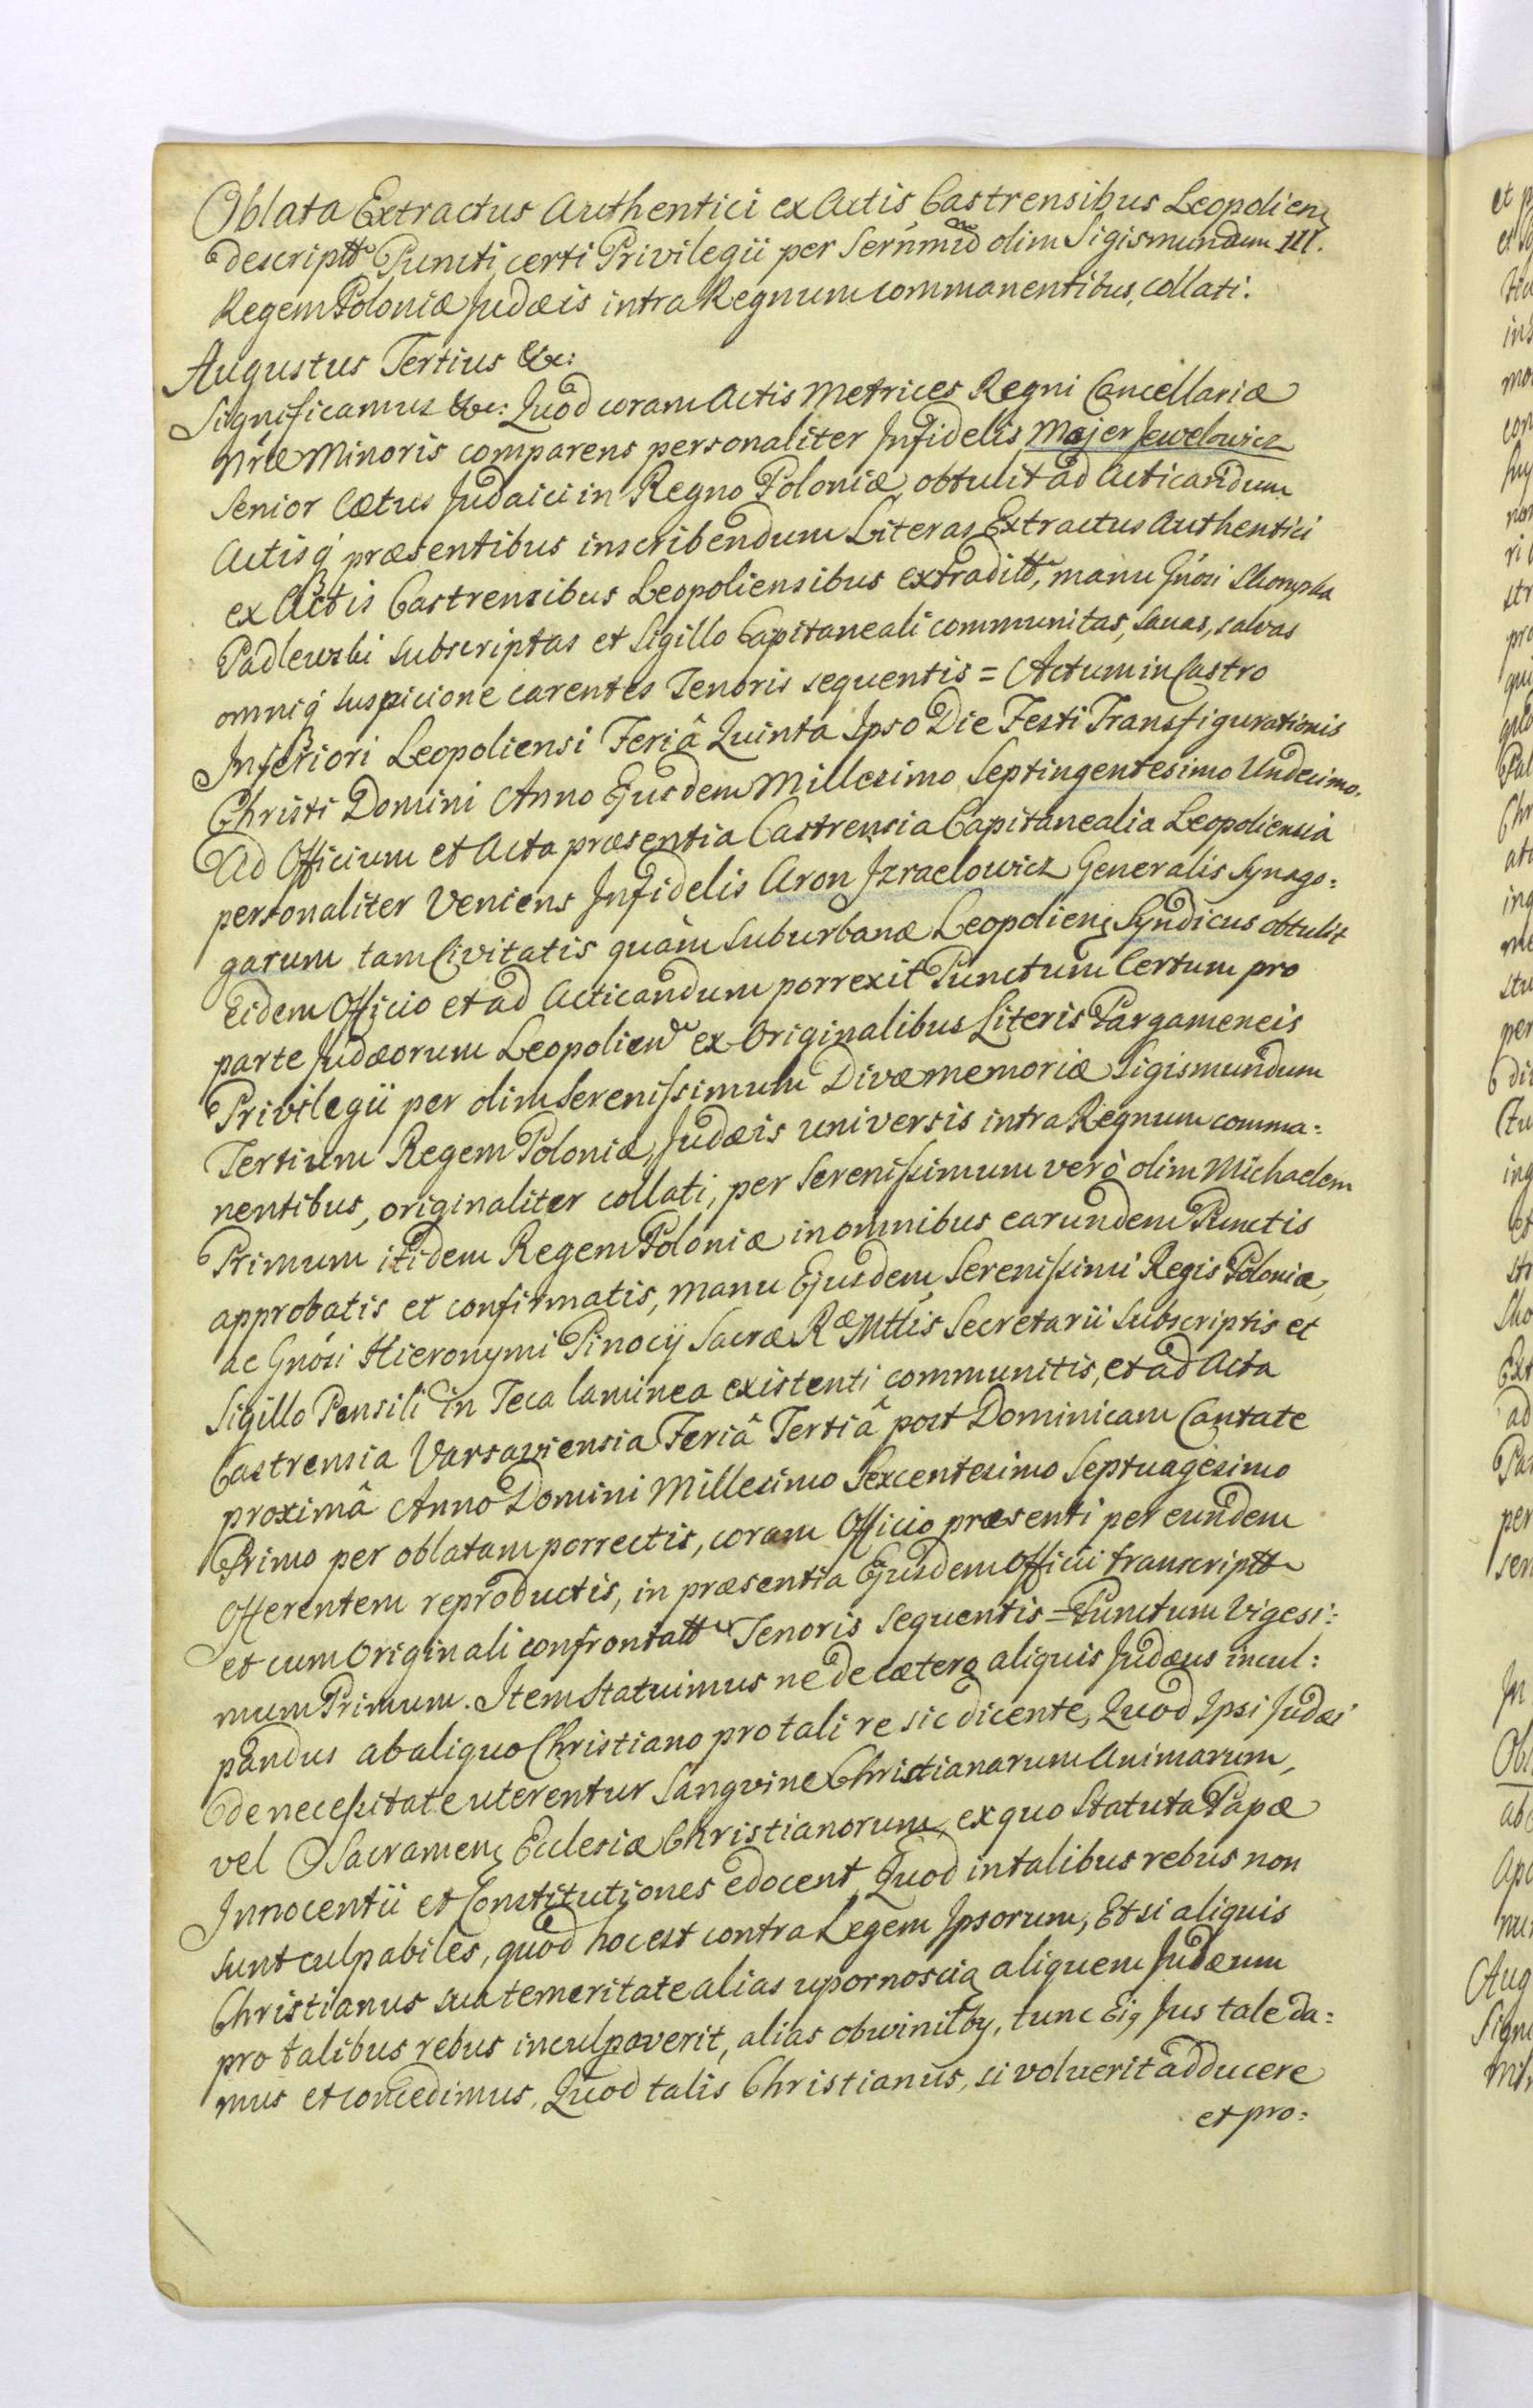 Oblata Extractus Authentici ex Actis Castrensibus Leopolien̄
descriptt Puncti certi Privilegii per Serńmū olim Sigismundum III.
Regem Poloniæ Judæis intra Regnum commanentibus, collati.
Augustus Tertius &c:
Significamus &c: Quod coram Actis Metrices Regni Cancellariæ
Nr̃æ Minoris comparens personaliter Infidelis Majer Jewelowicz
Senior Cœtus Judaici in Regno Poloniæ, obtulit ad Acticandum
Actisq́ præsentibus inscribendum Literas Extractus Authentici
ex Actis Castrensibus Leopoliensibus extraditt, manu Gńosi
Padlewski subscriptas et Sigillo Capitaneali communitas, sanas, salvas
omniq́ suspicione carentes Tenoris sequentis = Actum in Castro
Inferiori Leopoliensi Feriâ Quinta Ipso Die Festi Transfigurationis
Christi Domini Anno Ejusdem Millesimo Septingentesimo Undecimo.
Ad Officium et Acta præsentia Castrensia Capitanealia Leopoliensia
personaliter Veniens Infidelis Aron Jzraelowicz Generalis Synago:
garum tam Civitatis quàm Suburbanæ Leopolien̄ Syndicus obtulit
Eidem Officio et ad Acticandum porrexit Punctum Certum pro
parte Judæorum Leopolien̄ ex Originalibus Literis Pargameneis
Privilegii per olim Serenissimum Divæ memoriæ Sigismundum
Tertium Regem Poloniæ, Judæis universis intra Regnum comma:
nentibus, originaliter collati, per Serenissimum verò olim Michaelem
Primum itidem Regem Poloniæ in omnibus earundem Punctis
approbatis et confirmatis, manu Ejusdem Serenissimi Regis Poloniæ,
ac Gnósi Hieronymi Pinocij Sacræ Ræ Mttis Secretarii subscriptis et
Sigillo Pensili in Teca laminea existenti communitis, et ad Acta
Castrensia Varsaviensia Feriâ Tertiâ post Dominicam Cantate
proximâ Anno Domini Millesimo Sexcentesimo Septuagesimo
Primo per oblatam porrectis, coram Officio præsenti per eundem
Offerentem reproductis, in præsentia Ejusdem Officii transcriptt
et cum Originali confrontatt Tenoris sequentis = Punctum Vigesi:
mum Primum. Item Statuimus ne de cætero aliquis Judæus incul:
pandus ab aliquo Christiano pro tali re sic dicente, Quod Ipsi Judæi
de necessitate uterentur Sangvine Christianarum Animarum,
vel Sacramen̄ Ecclesiæ Christianorum, ex quo Statuta Papæ
Innocentii et Constitutiones edocent, Quod in talibus rebus non
sunt culpabiles, quod hoc est contra Legem Ipsorum, Et si aliquis
Christianus sua temeritate alias upornoscią aliquem Judæum
pro talibus rebus inculpaverit, alias obwinilby, tunc Eis Jus tale da:
mus et concedimus, Quod talis Christianus, si voluerit adducere
et pro: